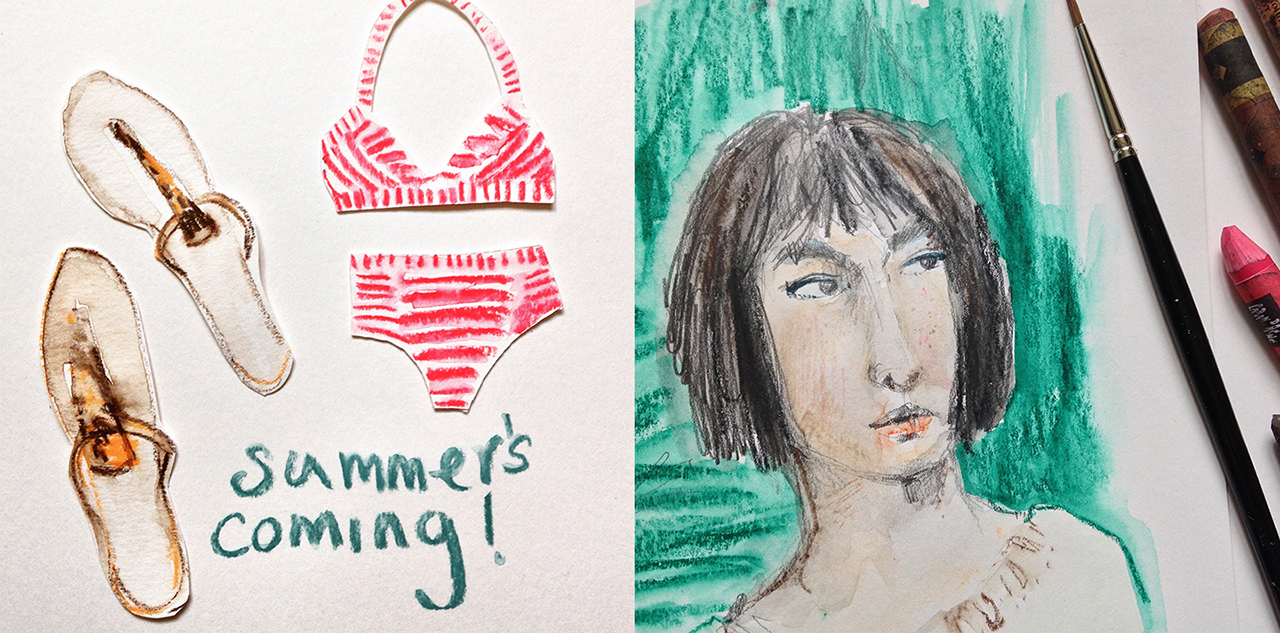 summer's
coming!